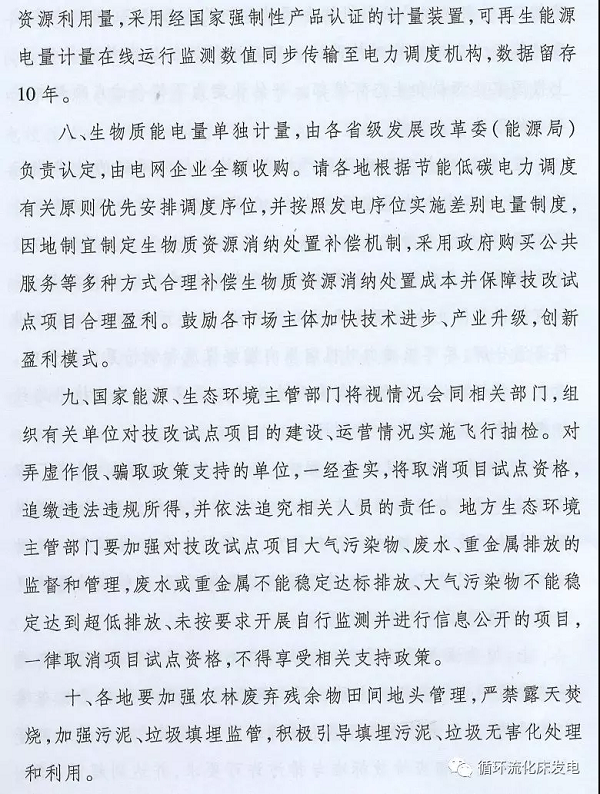 资源利用量,采用经国家强制性产品认证的计量装置,可再生能源
电量计量在线运行监测数值同步传输至电力调度机构,数据留存
10年。
八、生物质能电量单独计量,由各省级发展改革委(能源局)
负责认定,由电网企业全额收购。请各地根据节能低碳电力调度
有关原则优先安排调度序位,并按照发电序位实施差别电量制度,
因地制宜制定生物质资源消纳处置补偿机制,采用政府购买公共
服务等多种方式合理补偿生物质资源消纳处置成本并保障技改试
点项目合理盈利。鼓励各市场主体加快技术进步、产业升级,创新
盈利模式。
九、国家能源、生态环境主管部门将视情况会同相关部门,组
织有关单位对技改试点项目的建设、运营情况实施飞行抽检。对
弄虚作假、骗取政策支持的单位,一经查实,将取消项目试点资格,
追缴违法违规所得,并依法追究相关人员的责任。地方生态环境
主管部门要加强对技改试点项目大气污染物、废水、重金属排放的
监督和管理,废水或重金属不能稳定达标排放、大气污染物不能稳
定达到超低排放、未按要求开展自行监测并进行信息公开的项目,
一律取消项目试点资格,不得享受相关支持政策。
十、各地要加强农林废弃残余物田间地头管理,严禁露天焚
烧,加强污泥、垃圾填埋监管,积极引导填埋污泥、垃圾无害化处理
和利用。
循环流化床发电